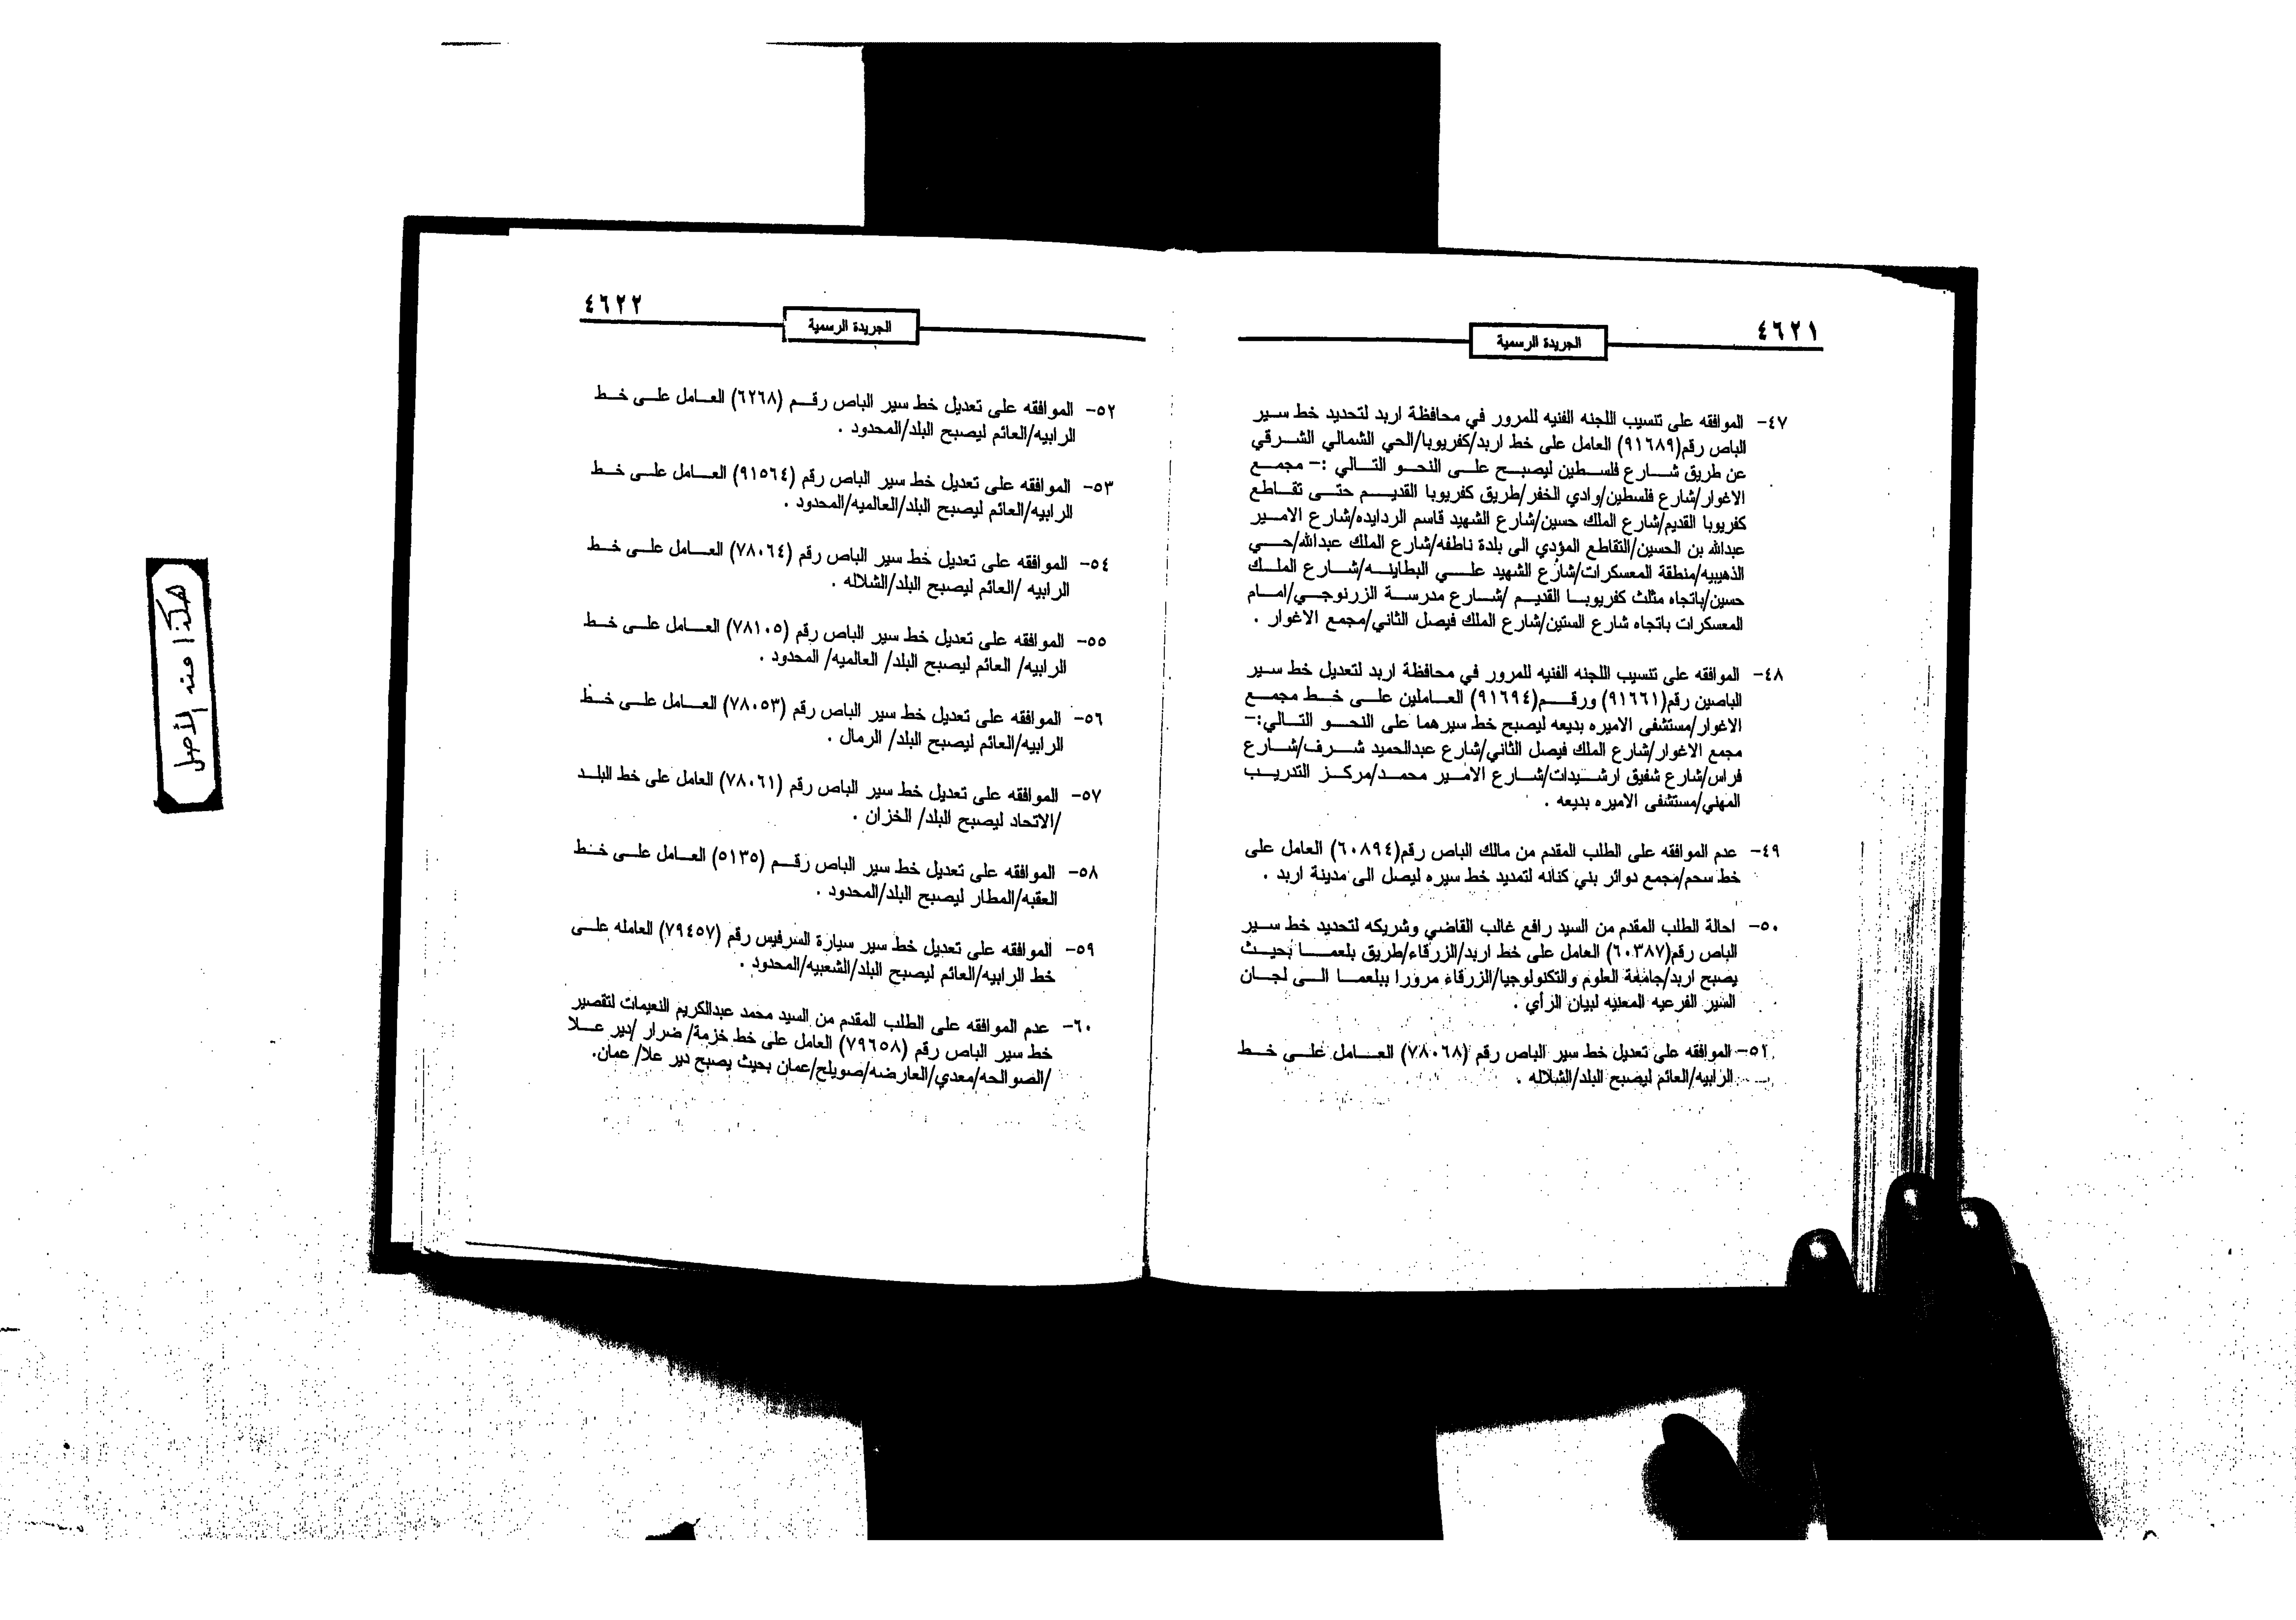 ٤٦٢١
الجريدة الرسمية
٤٧- الموافقه على تنسيب اللجنه الفنيه للمرور في محافظة اربد لتحديد خط سير
الباص رقم(٩١٦٨٩) العامل على خط اربد/كفريوبا/الحي الشمالي الشرقي
عن طريق شارع فلسطين ليصبح على النحو التالي :- مجمع
الاغوار/شارع فلسطين/وادي الخفر/طريق كفريوبا القديم حتى تقاطع
كفريوبا القديم/شارع الملك حسين/شارع الشهيد قاسم الردايده/شارع الامير
عبدالله بن الحسين/التقاطع المؤدي الى بلدة ناطفه/شارع الملك عبدالله/حي
الذهيبيه/منطقة المعسكرات/شارع الشهيد علي البطاينه/شارع الملك
حسين/باتجاه مثلث كفريوبا القديم /شارع مدرسة الزرنوجي/امام
المعسكرات باتجاه شارع الستين/شارع الملك فيصل الثاني/مجمع الاغوار .
٤٨- الموافقه على تنسيب اللجنه الفنيه للمرور في محافظة اربد لتعديل خط سير
الباصين رقم(٩١٦٦١) ورقم(٩١٦٩٤) العاملين على خط مجمع
الاغوار/مستشفى الاميره بديعه ليصبح خط سيرهما على النحو التالي:-
مجمع الاغوار/شارع الملك فيصل الثاني/شارع عبدالحميد شرف/شارع
فراس/شارع شفيق ارشيدات/شارع الامير محمد/مركز التدريب
المهني/مستشفى الاميره بديعه .
٤٩- عدم الموافقه على الطلب المقدم من مالك الباص رقم(٦٠٨٩٤) العامل على
خط سحم/مجمع دوائر بني كنانه لتمديد خط سيره ليصل الى مدينة اربد .
٥٠- احالة الطلب المقدم من السيد رافع غالب القاضي وشريكه لتحديد خط سير
الباص رقم(٦٠٣٨٧) العامل على خط اربد/الزرقاء/طريق بلعما بحيث
يصبح اربد/جامعة العلوم والتكنولوجيا/الزرقاء مرورا ببلعما الى لجان
السير الفرعيه المعنيه لبيان الرأي .
٥١- الموافقه على تعديل خط سير الباص رقم (٧٨٠٦٨) العامل على خط
الرابيه/العائم ليصبح البلد/الشلاله .
٤٦٢٢
الجريدة الرسمية
٥٢- الموافقه على تعديل خط سير الباص رقم (٦٢٦٨) العامل على خط
الرابيه/العائم ليصبح البلد/المحدود .
٥٣- الموافقه على تعديل خط سير الباص رقم (٩١٥٦٤) العامل على خط
الرابيه/العائم ليصبح البلد/العالميه/المحدود .
٥٤- الموافقه على تعديل خط سير الباص رقم (٧٨٠٦٤) العامل على خط
الرابيه /العائم ليصبح البلد/الشلاله .
٥٥- الموافقه على تعديل خط سير الباص رقم (٧٨١٠٥) العامل على خط
الرابيه/ العائم ليصبح البلد/ العالميه/ المحدود .
٥٦- الموافقه على تعديل خط سير الباص رقم (٧٨٠٥٣) العامل على خط
الرابيه/العائم ليصبح البلد/ الرمال .
٥٧- الموافقه على تعديل خط سير الباص رقم (٧٨٠٦١) العامل على خط البلد
/الاتحاد ليصبح البلد/ الخزان .
٥٨- الموافقه على تعديل خط سير الباص رقم (٥١٣٥) العامل على خط
العقبه/المطار ليصبح البلد/المحدود .
٥٩- الموافقه على تعديل خط سير سيارة السرفيس رقم (٧٩٤٥٧) العامله على
خط الرابيه/العائم ليصبح البلد/الشعبيه/المحدود .
٦٠- عدم الموافقه على الطلب المقدم من السيد محمد عبدالكريم النعيمات لتقصير
خط سير الباص رقم (٧٩٦٥٨) العامل على خط خزمة/ ضرار /دير علا
/الصوالحه/معدي/العارضه/صويلح/عمان بحيث يصبح دير علا/ عمان.
هكذا منه الأصل